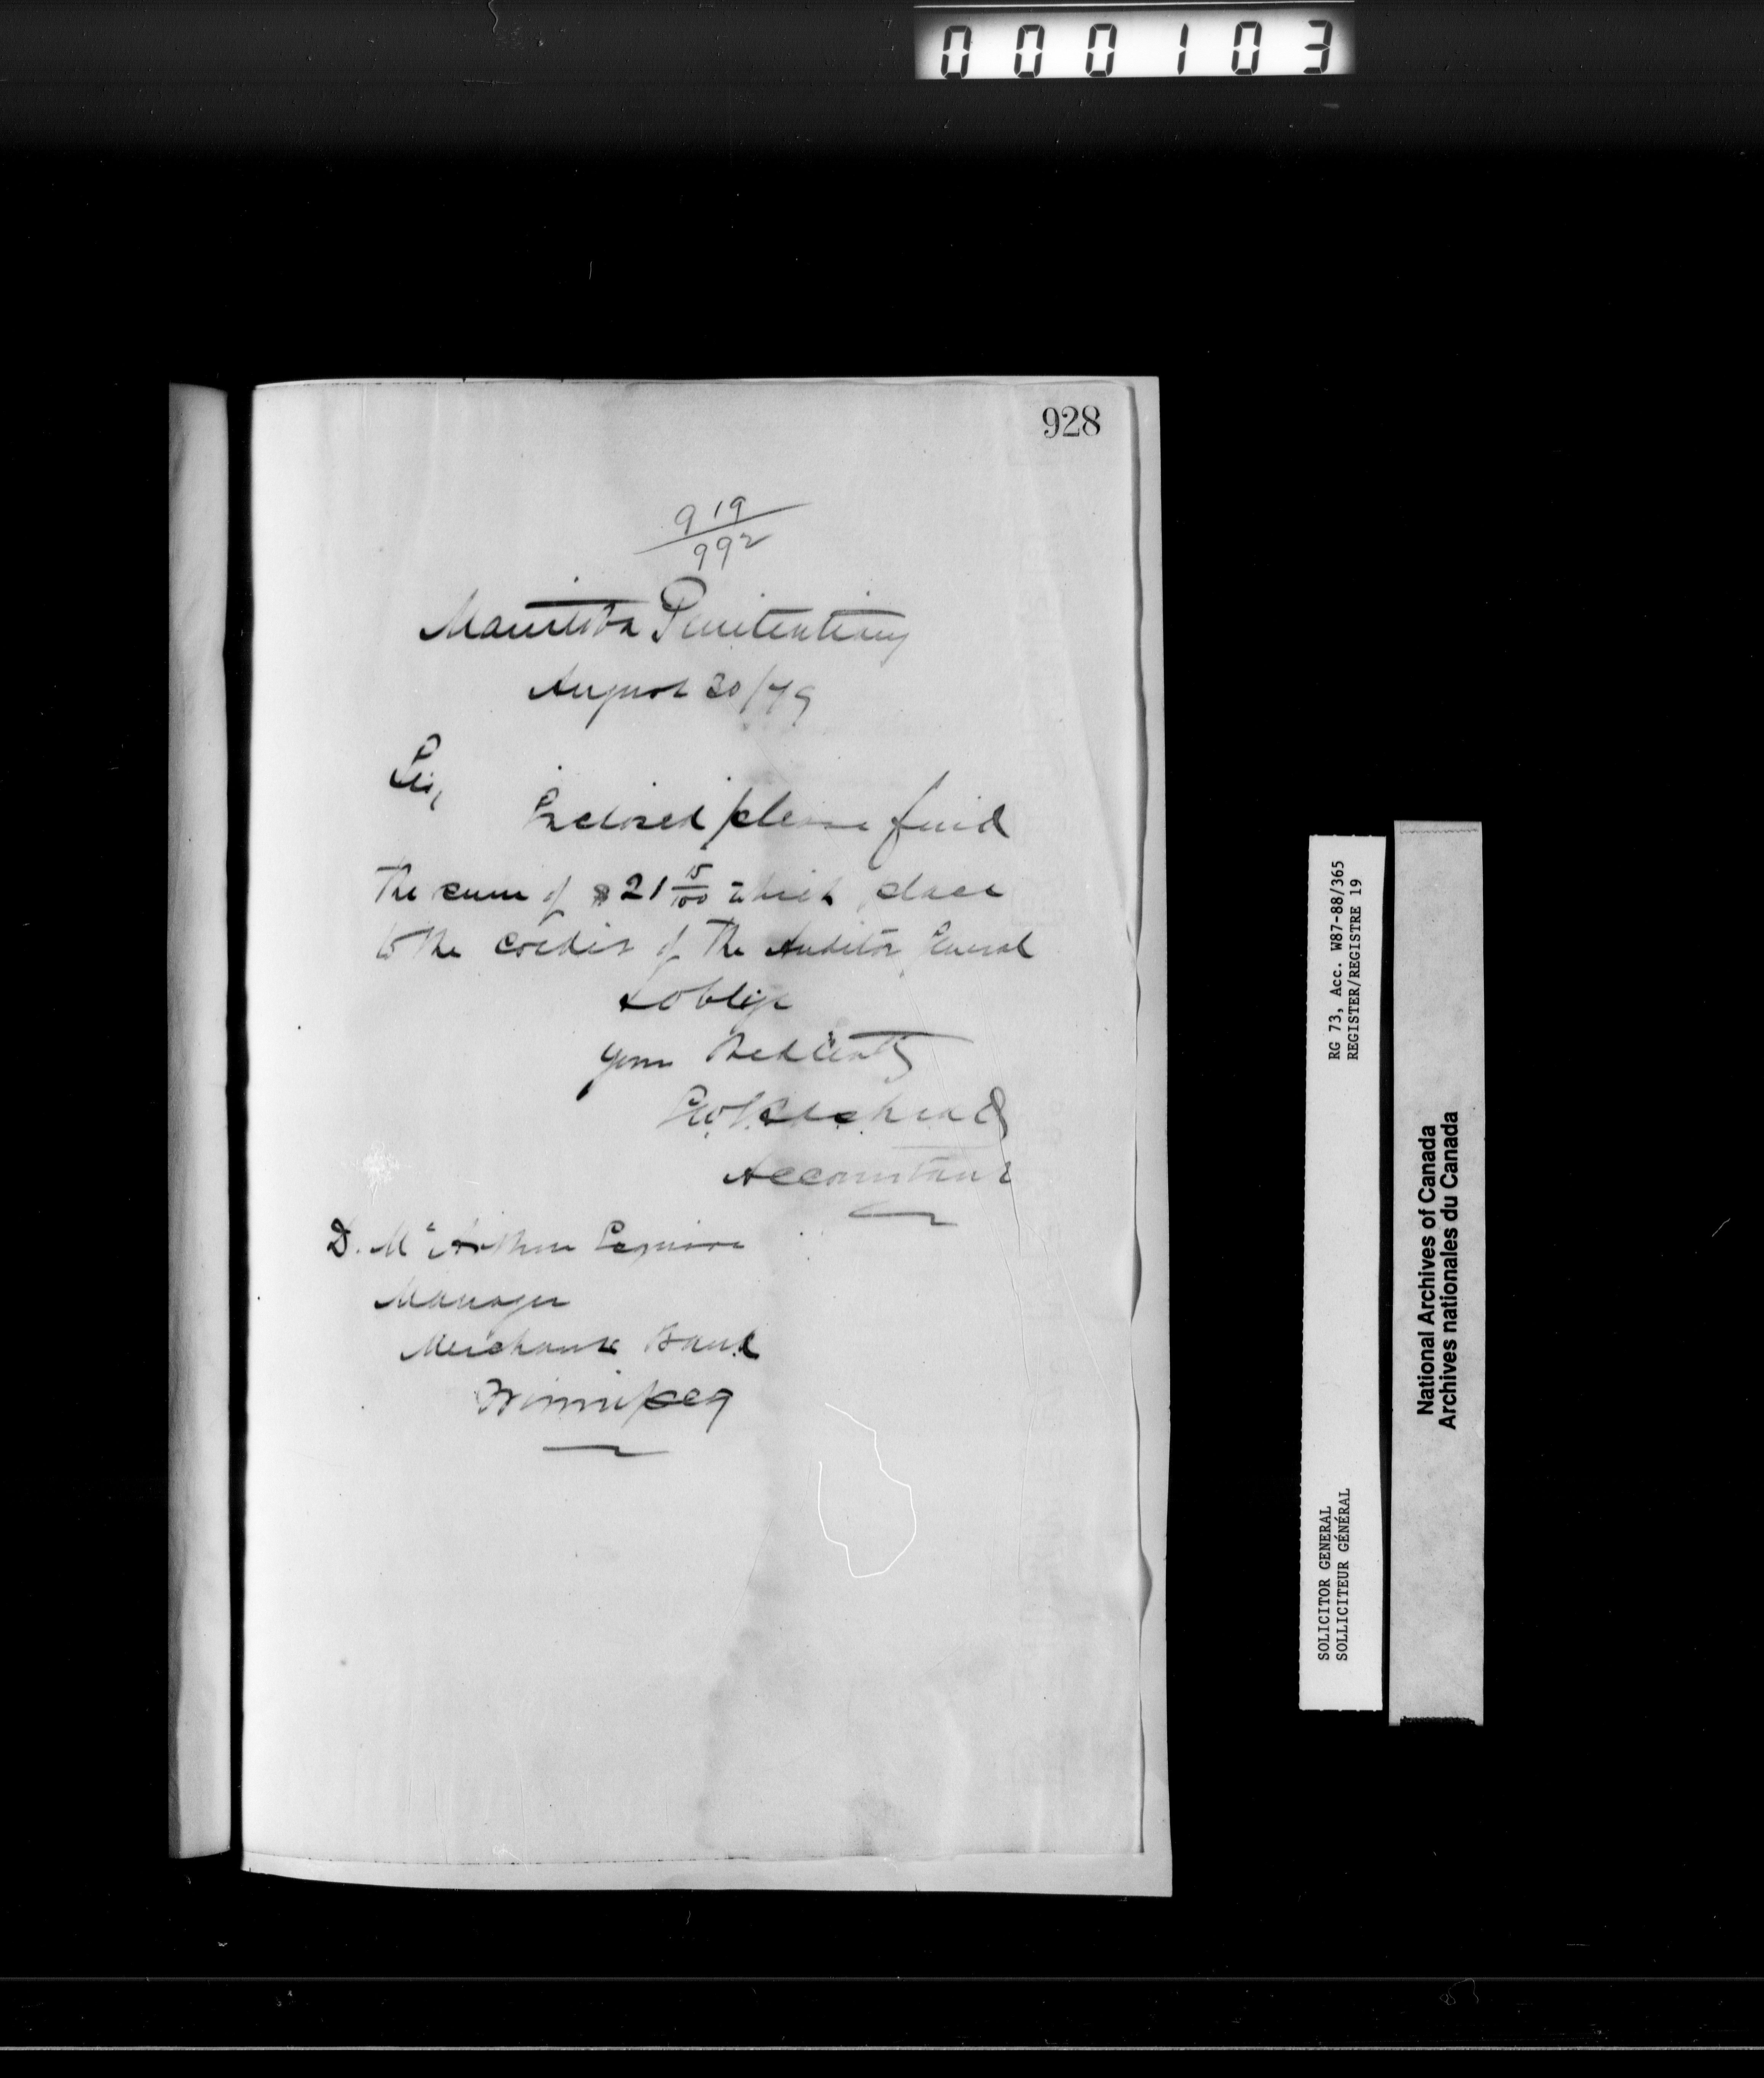 000103
928
919
992
Manitoba Penitentiary
August 30/79
Sir,
Enclosed please find
the sum of $21 15/100 which place
to the credit of the Auditor General
& oblige
your Obed Servt
Accountant
D. McArthur Esquire
Manager
Merchants Bank
Winnipeg
RG 73, Acc. W87-88/365
REGISTER/REGISTRE 19
SOLICITOR GENERAL
SOLLICITEUR GÉNÉRAL
National Archives of Canada
Archives nationales du Canada